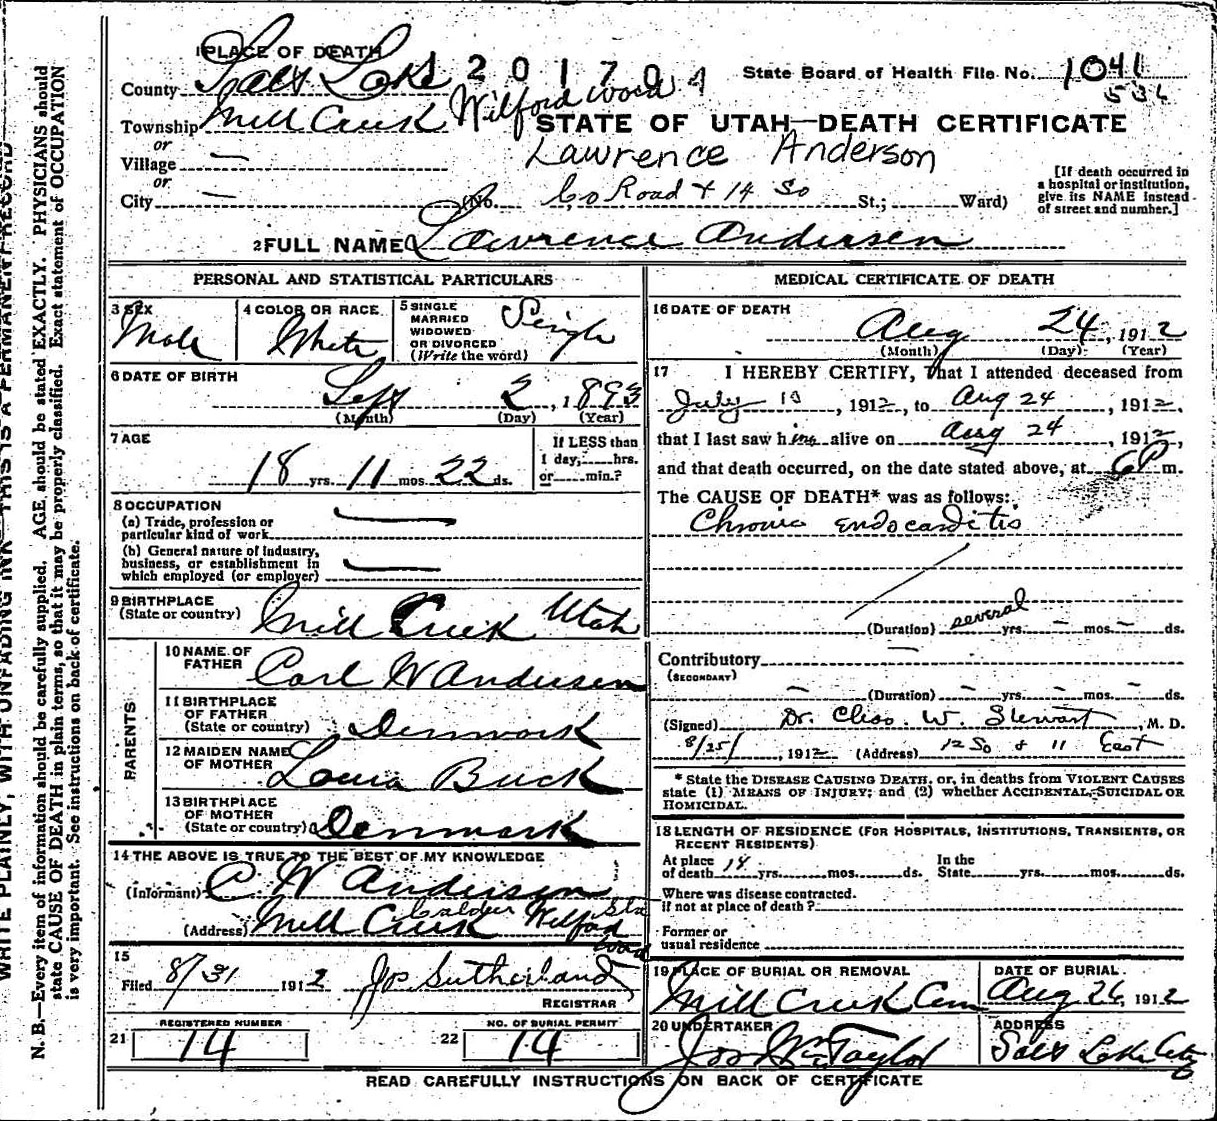 1 PLACE OF DEATH
County Salt Lake 201704 State Board of Health File No. 1041
536
Township Mill Creek Wilford Wood STATE OF UTAH—DEATH CERTIFICATE
or
Lawrence Anderson
Village —
or
City — (No. Co Road & 14 So St.; Ward)
[If death occurred in a hospital or institution, give its NAME instead of street and number.]
2 FULL NAME Lawrence Andersen
PERSONAL AND STATISTICAL PARTICULARS
3 SEX Male
4 COLOR OR RACE White
5 SINGLE MARRIED WIDOWED OR DIVORCED (Write the word) Single
6 DATE OF BIRTH Sept 2, 1893
(Month) (Day) (Year)
7 AGE 18 yrs. 11 mos. 22 ds.
If LESS than 1 day, hrs. or min.?
8 OCCUPATION
(a) Trade, profession or particular kind of work —
(b) General nature of industry, business, or establishment in which employed (or employer) —
9 BIRTHPLACE (State or country) Mill Creek Utah
PARENTS
10 NAME OF FATHER Carl W Andersen
11 BIRTHPLACE OF FATHER (State or country) Denmark
12 MAIDEN NAME OF MOTHER Buck
13 BIRTHPLACE OF MOTHER (State or country) Denmark
14 THE ABOVE IS TRUE TO THE BEST OF MY KNOWLEDGE
(Informant) C W Andersen
(Address) Mill Creek Calder Sta Wilford Wood
15 Filed 8/31 1912 Jos Sutherland
REGISTRAR
21 REGISTERED NUMBER 14
22 NO. OF BURIAL PERMIT 14
MEDICAL CERTIFICATE OF DEATH
16 DATE OF DEATH Aug 24, 1912
(Month) (Day) (Year)
17 I HEREBY CERTIFY, That I attended deceased from
July 10, 1912, to Aug 24, 1912,
that I last saw him alive on Aug 24, 1912,
and that death occurred, on the date stated above, at 6 P m.
The CAUSE OF DEATH* was as follows:
Chronic endocarditis
(Duration) several yrs. — mos. — ds.
Contributory —
(SECONDARY)
— (Duration) — yrs. — mos. — ds.
(Signed) Dr. Chas. W. Stewart, M. D.
8/25/, 1912 (Address) 12 So & 11 East
* State the DISEASE CAUSING DEATH, or, in deaths from VIOLENT CAUSES state (1) MEANS OF INJURY; and (2) whether ACCIDENTAL, SUICIDAL OR HOMICIDAL.
18 LENGTH OF RESIDENCE (FOR HOSPITALS, INSTITUTIONS, TRANSIENTS, OR RECENT RESIDENTS)
At place of death 18 yrs. mos. ds. In the State yrs. mos. ds.
Where was disease contracted, if not at place of death?
Former or usual residence
19 PLACE OF BURIAL OR REMOVAL Mill Creek Cem
DATE OF BURIAL Aug 26, 1912
20 UNDERTAKER Jos Wm Taylor
ADDRESS Salt Lake City
READ CAREFULLY INSTRUCTIONS ON BACK OF CERTIFICATE
WRITE PLAINLY, WITH UNFADING INK—THIS IS A PERMANENT RECORD
N. B.—Every item of information should be carefully supplied. AGE should be stated EXACTLY. PHYSICIANS should
state CAUSE OF DEATH in plain terms, so that it may be properly classified. Exact statement of OCCUPATION
is very important. See instructions on back of certificate.